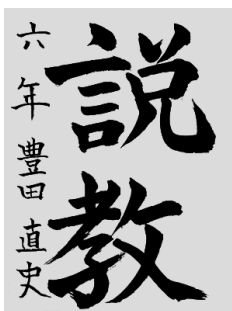 説教
六年 豊田直史